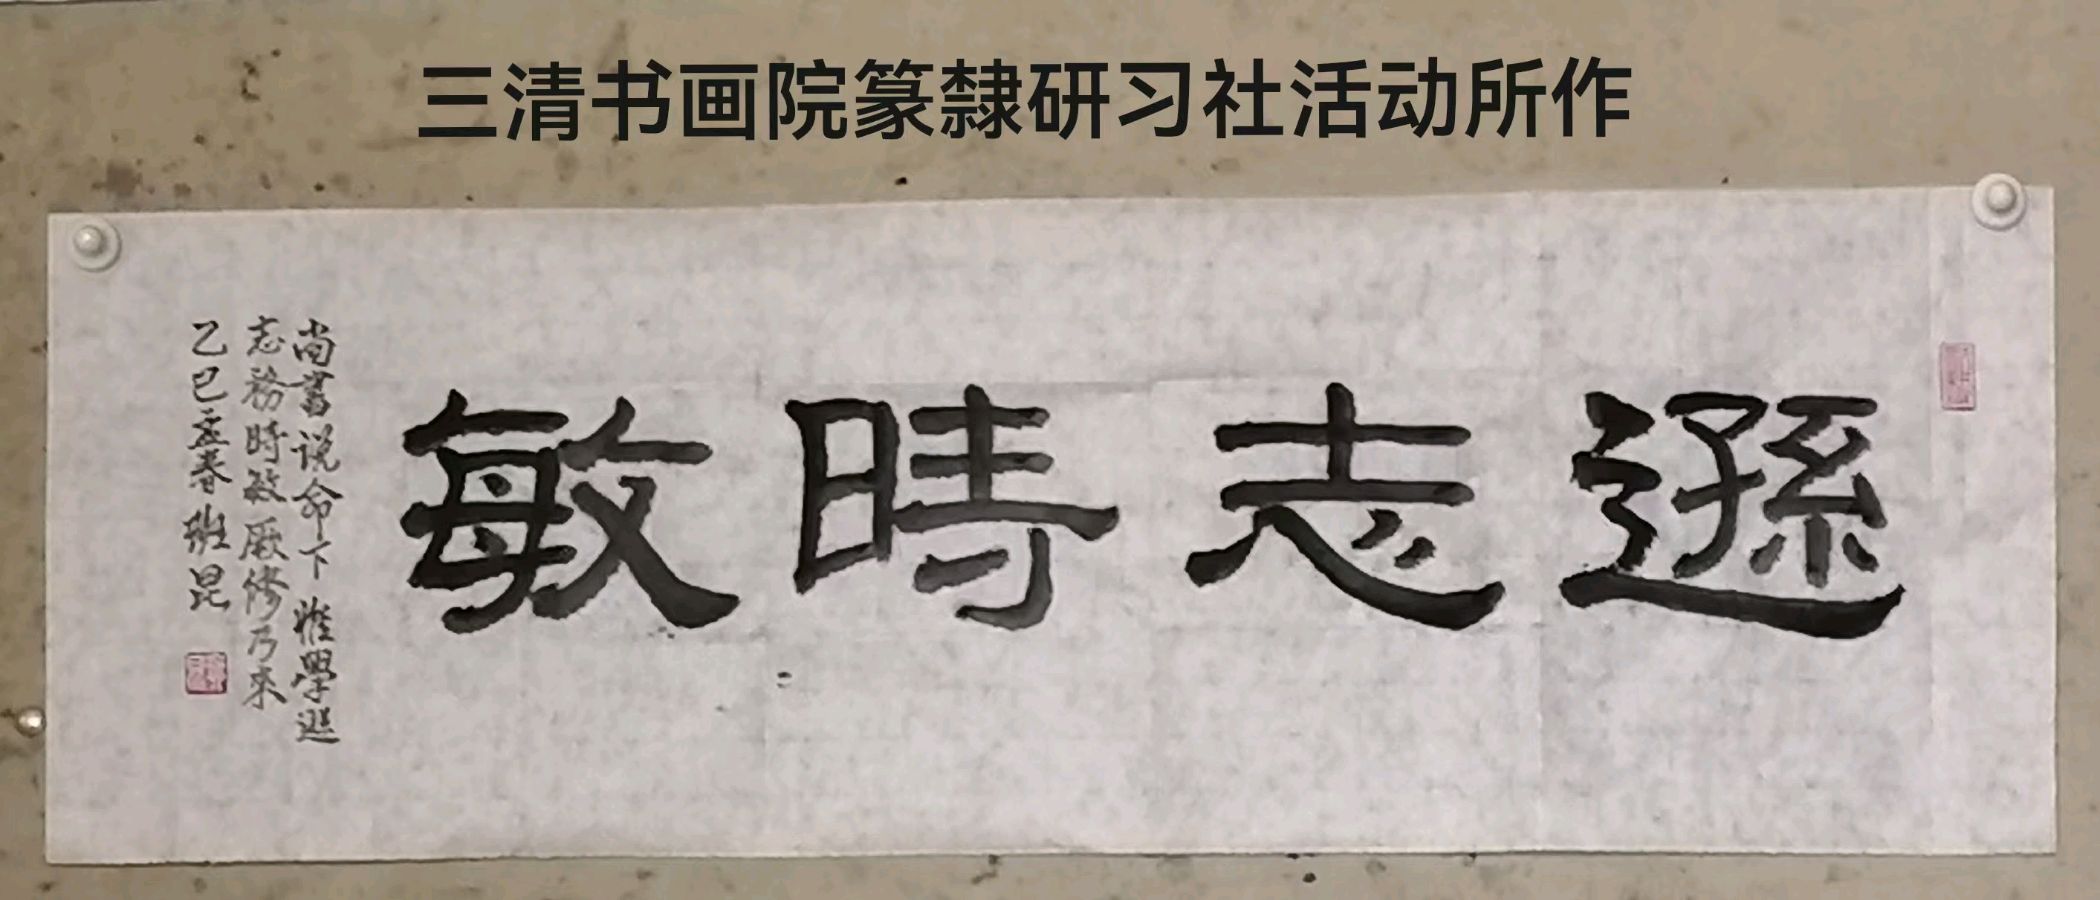 三清书画院篆隸研习社活动所作
遜志時敏
尚書说命下惟學遜
志務時敏厥修乃來
乙巳孟春 昆